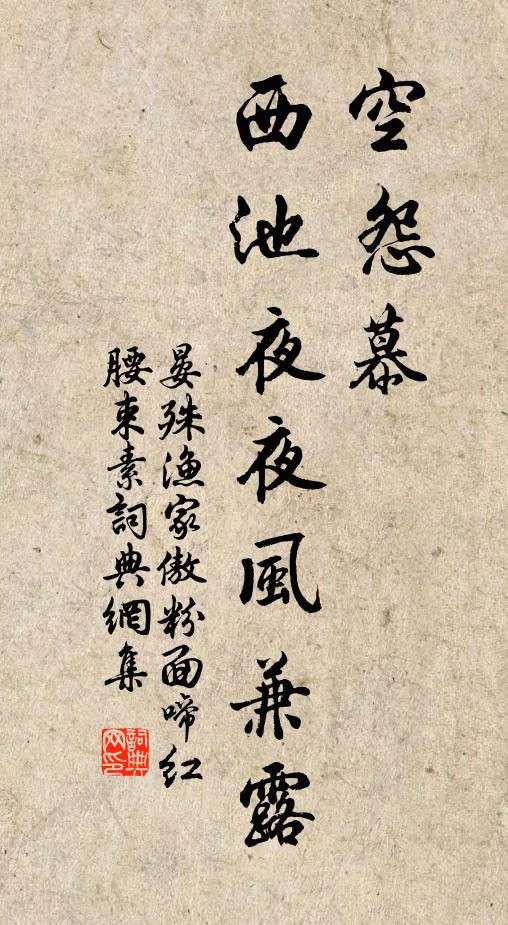 空怨慕
西池夜夜風兼露
晏殊漁家傲粉面啼紅
腰束素詞典網集
詞典网印